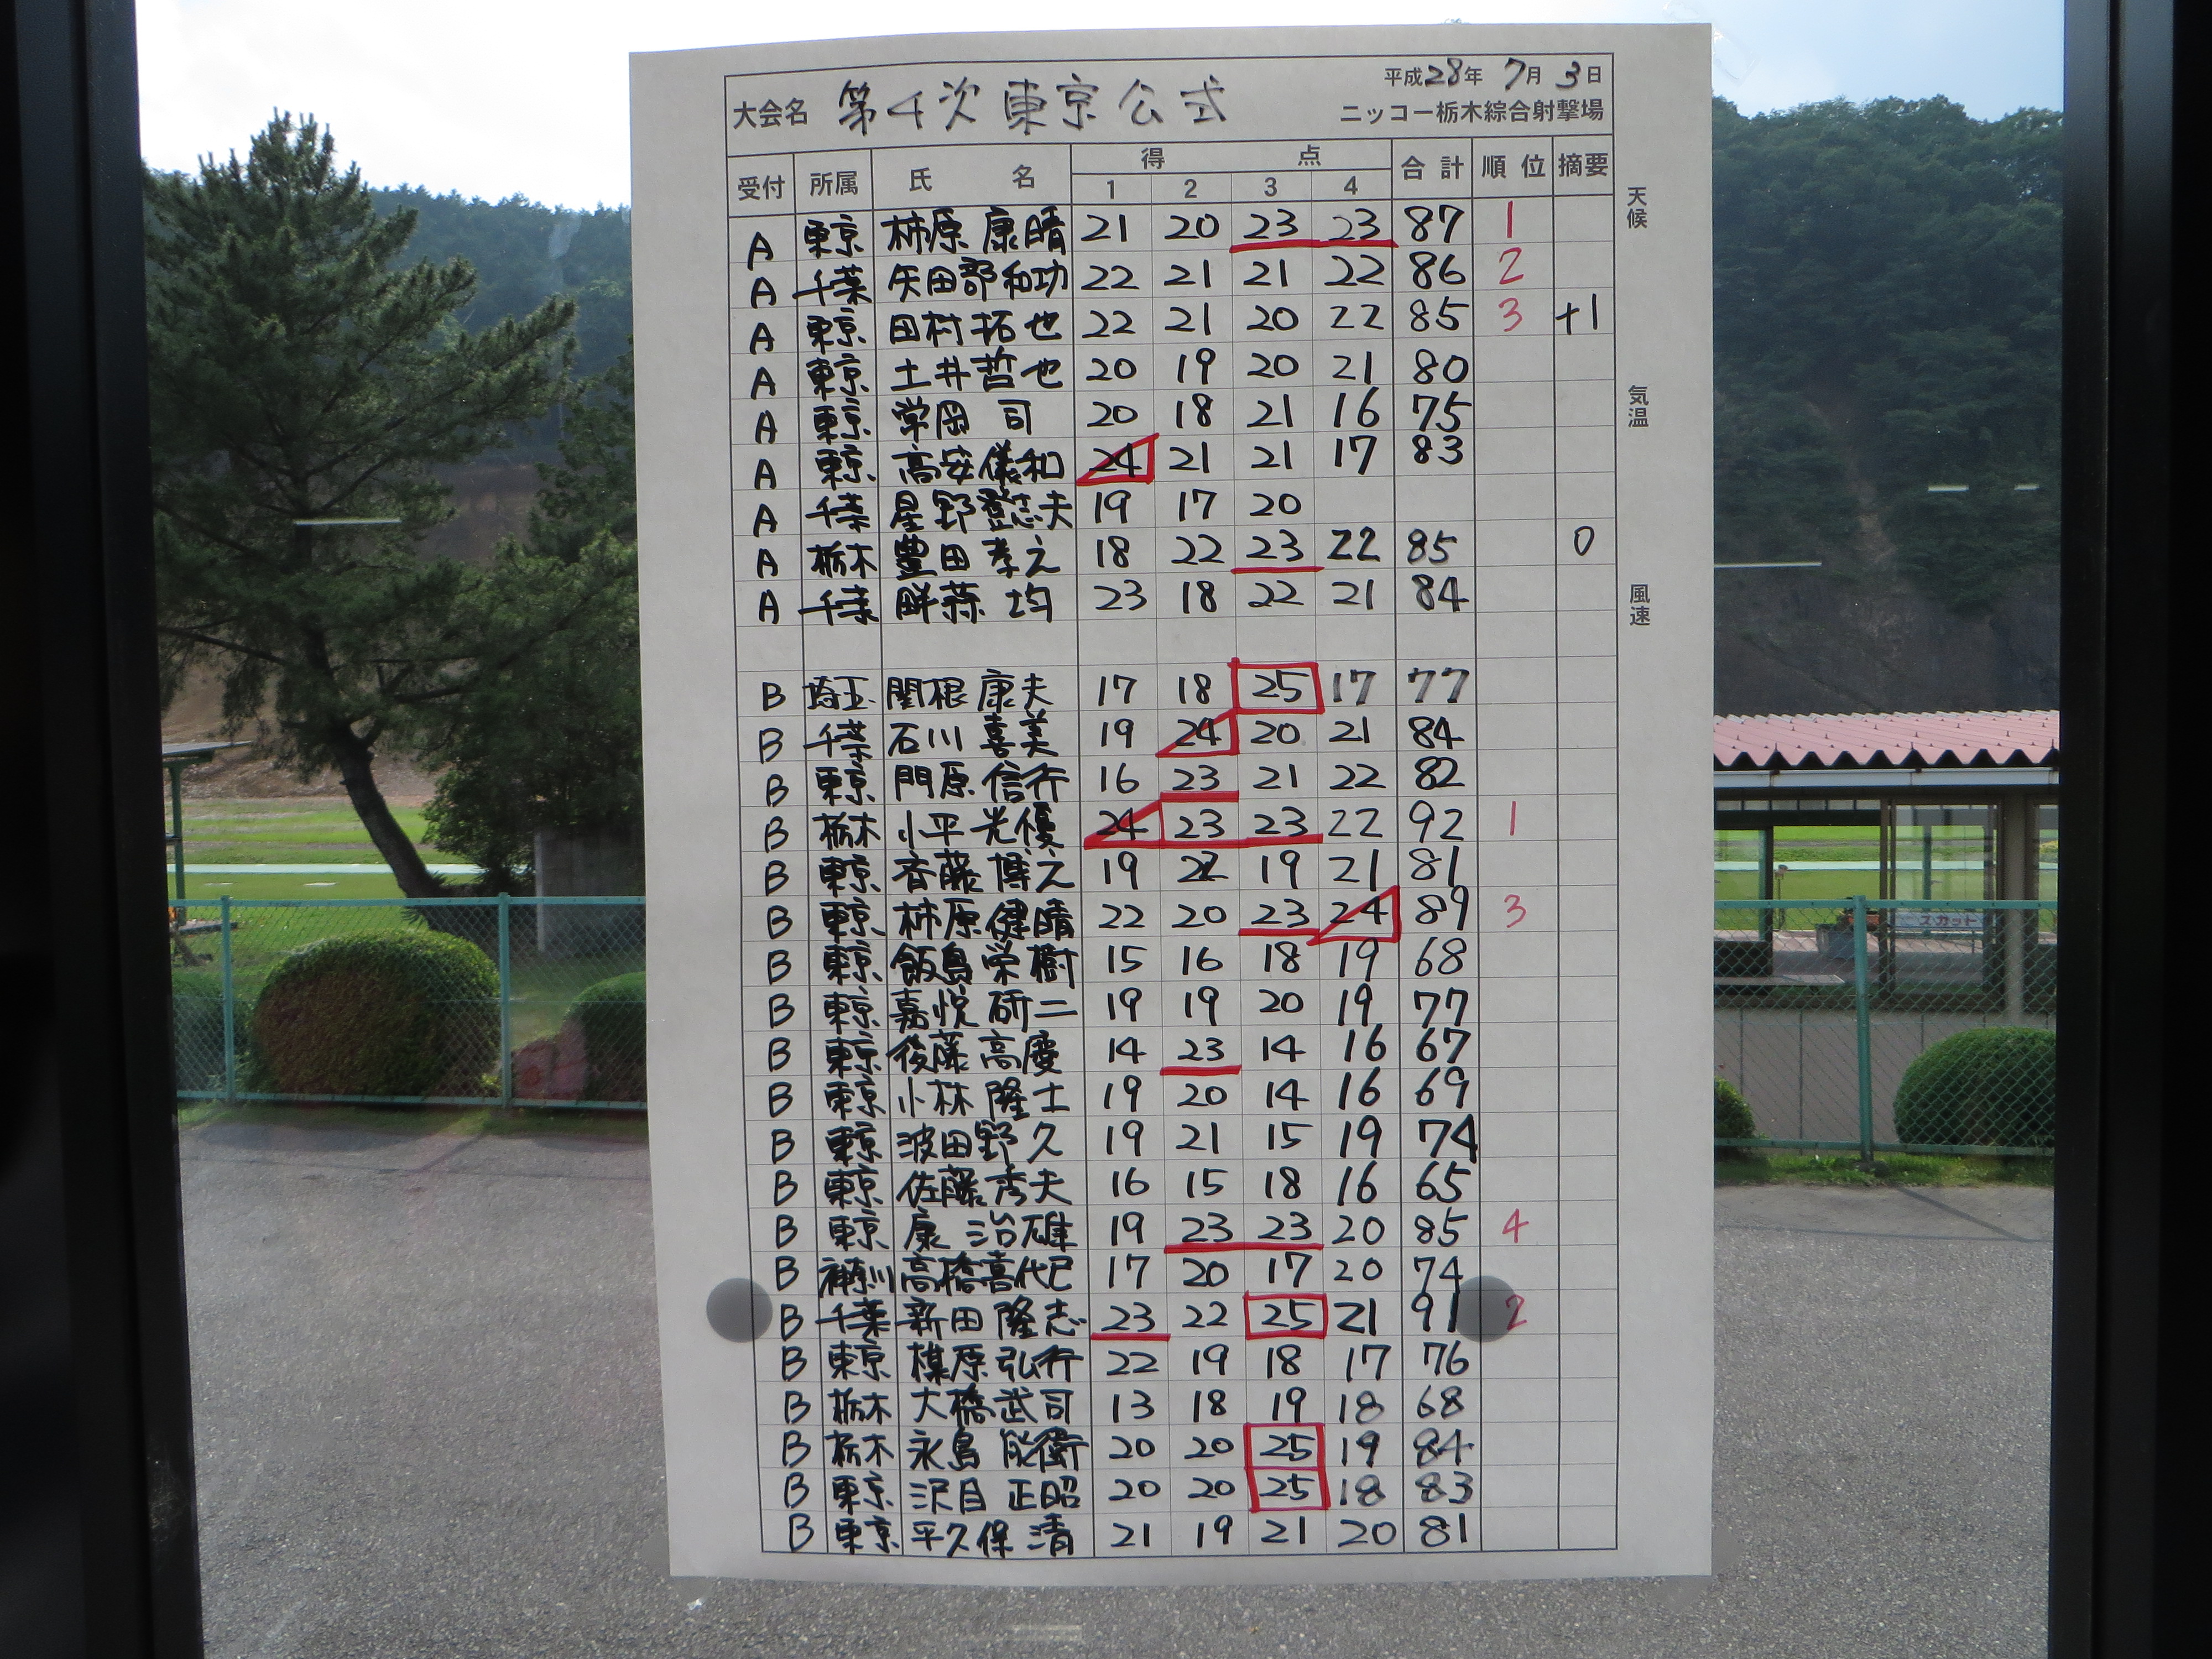 平成28年 7月 3日
大会名 第4次東京公式
ニッコー栃木綜合射撃場
受付 所属 氏名 得点 合計 順位 摘要
1 2 3 4
A 東京 柿原 康晴 21 20 23 23 87 1
A 千葉 矢田部和功 22 21 21 22 86 2
A 東京 田村拓也 22 21 20 22 85 3 +1
A 東京 土井哲也 20 19 20 21 80
A 東京 常岡 司 20 18 21 16 75
A 東京 高安儀和 24 21 21 17 83
A 千葉 星野登志夫 19 17 20
A 栃木 豊田孝之 18 22 23 22 85 0
A 千葉 畔蒜 均 23 18 22 21 84
B 埼玉 関根康夫 17 18 25 17 77
B 千葉 石川喜美 19 24 20 21 84
B 東京 門原信行 16 23 21 22 82
B 栃木 小平光優 24 23 23 22 92 1
B 東京 斉藤博之 19 22 19 21 81
B 東京 柿原健晴 22 20 23 24 89 3
B 東京 飯島栄樹 15 16 18 19 68
B 東京 嘉悦研二 19 19 20 19 77
B 東京 後藤高慶 14 23 14 16 67
B 東京 小林隆士 19 20 14 16 69
B 東京 波田野久 19 21 15 19 74
B 東京 佐藤秀夫 16 15 18 16 65
B 東京 康 治雄 19 23 23 20 85 4
B 神奈川 高橋喜代巳 17 20 17 20 74
B 千葉 新田隆志 23 22 25 21 91 2
B 東京 原弘行 22 19 18 17 76
B 栃木 大橋武司 13 18 19 18 68
B 栃木 永島能衛 20 20 25 19 84
B 東京 沢目正昭 20 20 25 18 83
B 東京 平久保清 21 19 21 20 81
天候
気温
風速
スカット